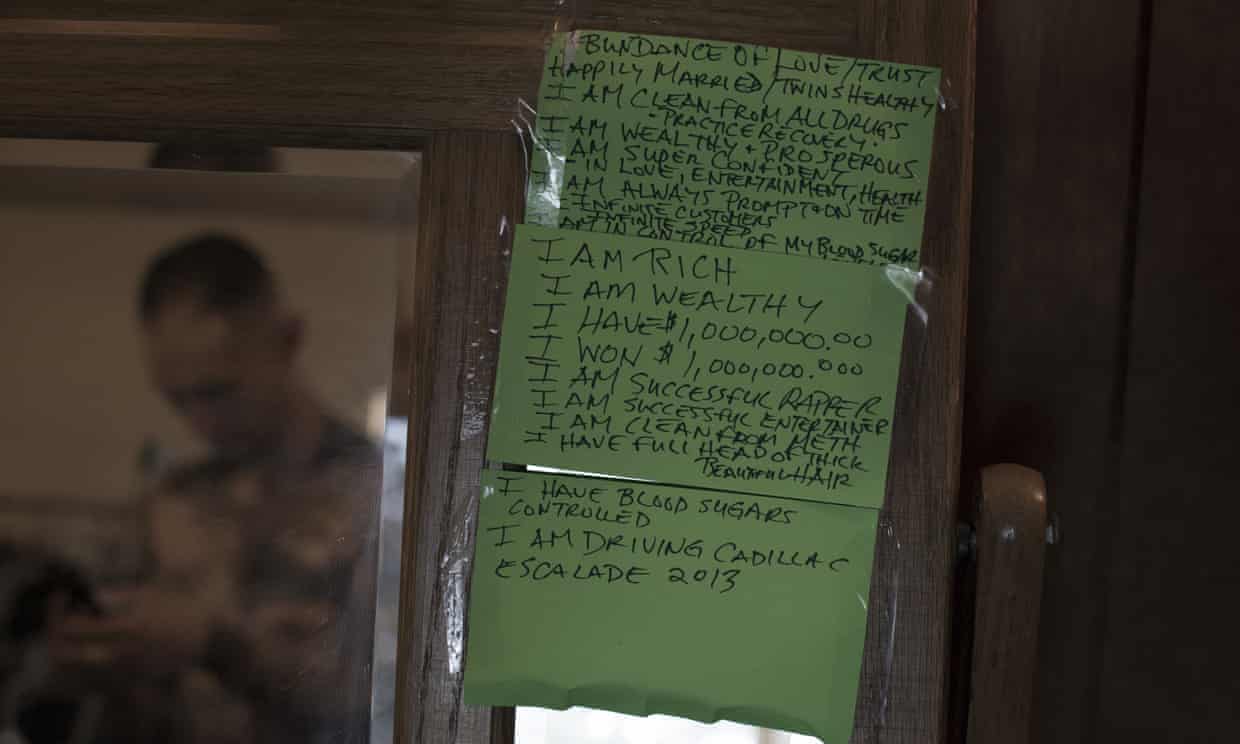 BUNDANCE OF LOVE/TRUST
HAPPILY MARRIED/TWINS HEALTHY
I AM CLEAN FROM ALL DRUGS
• PRACTICE RECOVERY.
I AM WEALTHY + PROSPEROUS
I AM SUPER CONFIDENT
IN LOVE, ENTERTAINMENT, HEALTH
I AM ALWAYS PROMPT & ON TIME
INFINITE CUSTOMERS
INFINITE SPEED
I AM IN CONTROL OF MY BLOOD SUGAR
I AM RICH
I AM WEALTHY
I HAVE $1,000,000.00
I WON $1,000,000.000
I AM SUCCESSFUL RAPPER
I AM SUCCESSFUL ENTERTAINER
I AM CLEAN FROM METH
I HAVE FULL HEAD OF THICK
BEAUTIFUL HAIR
I HAVE BLOOD SUGARS
CONTROLLED
I AM DRIVING CADILLAC
ESCALADE 2013